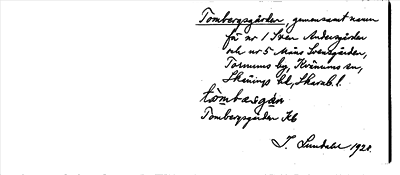 Tombergsgården, gemensamt namn
för nr 1 Sven Andersgården
och nr 5 Måns Svensgården,
Tornums by, Kvänums sn,
Skånings hd, Skarab. l.
tòmbæsgán
Tombergsgården Kb
I. Lundahl 1928.